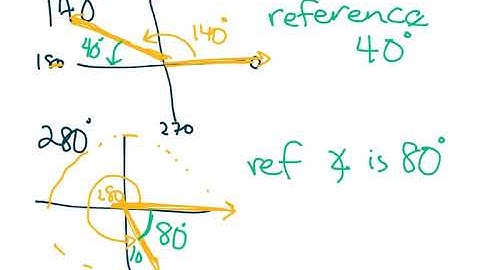 140
reference
40°
140°
40°
180
0
270
280°
ref ∡ is 80°
280
80°
10